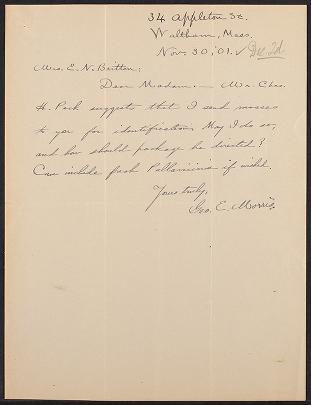 34 Appleton St.
Waltham, Mass.
Nov. 30, '01. ✓ Dec 2d
Mrs. E. N. Britton:
Dear Madam:— Mr. Chas.
H. Peck suggests that I send mosses
to you for identification. May I do so,
and how should package be directed?
Can include fresh if wish'd.
Yours truly,
Geo. E. Morris.